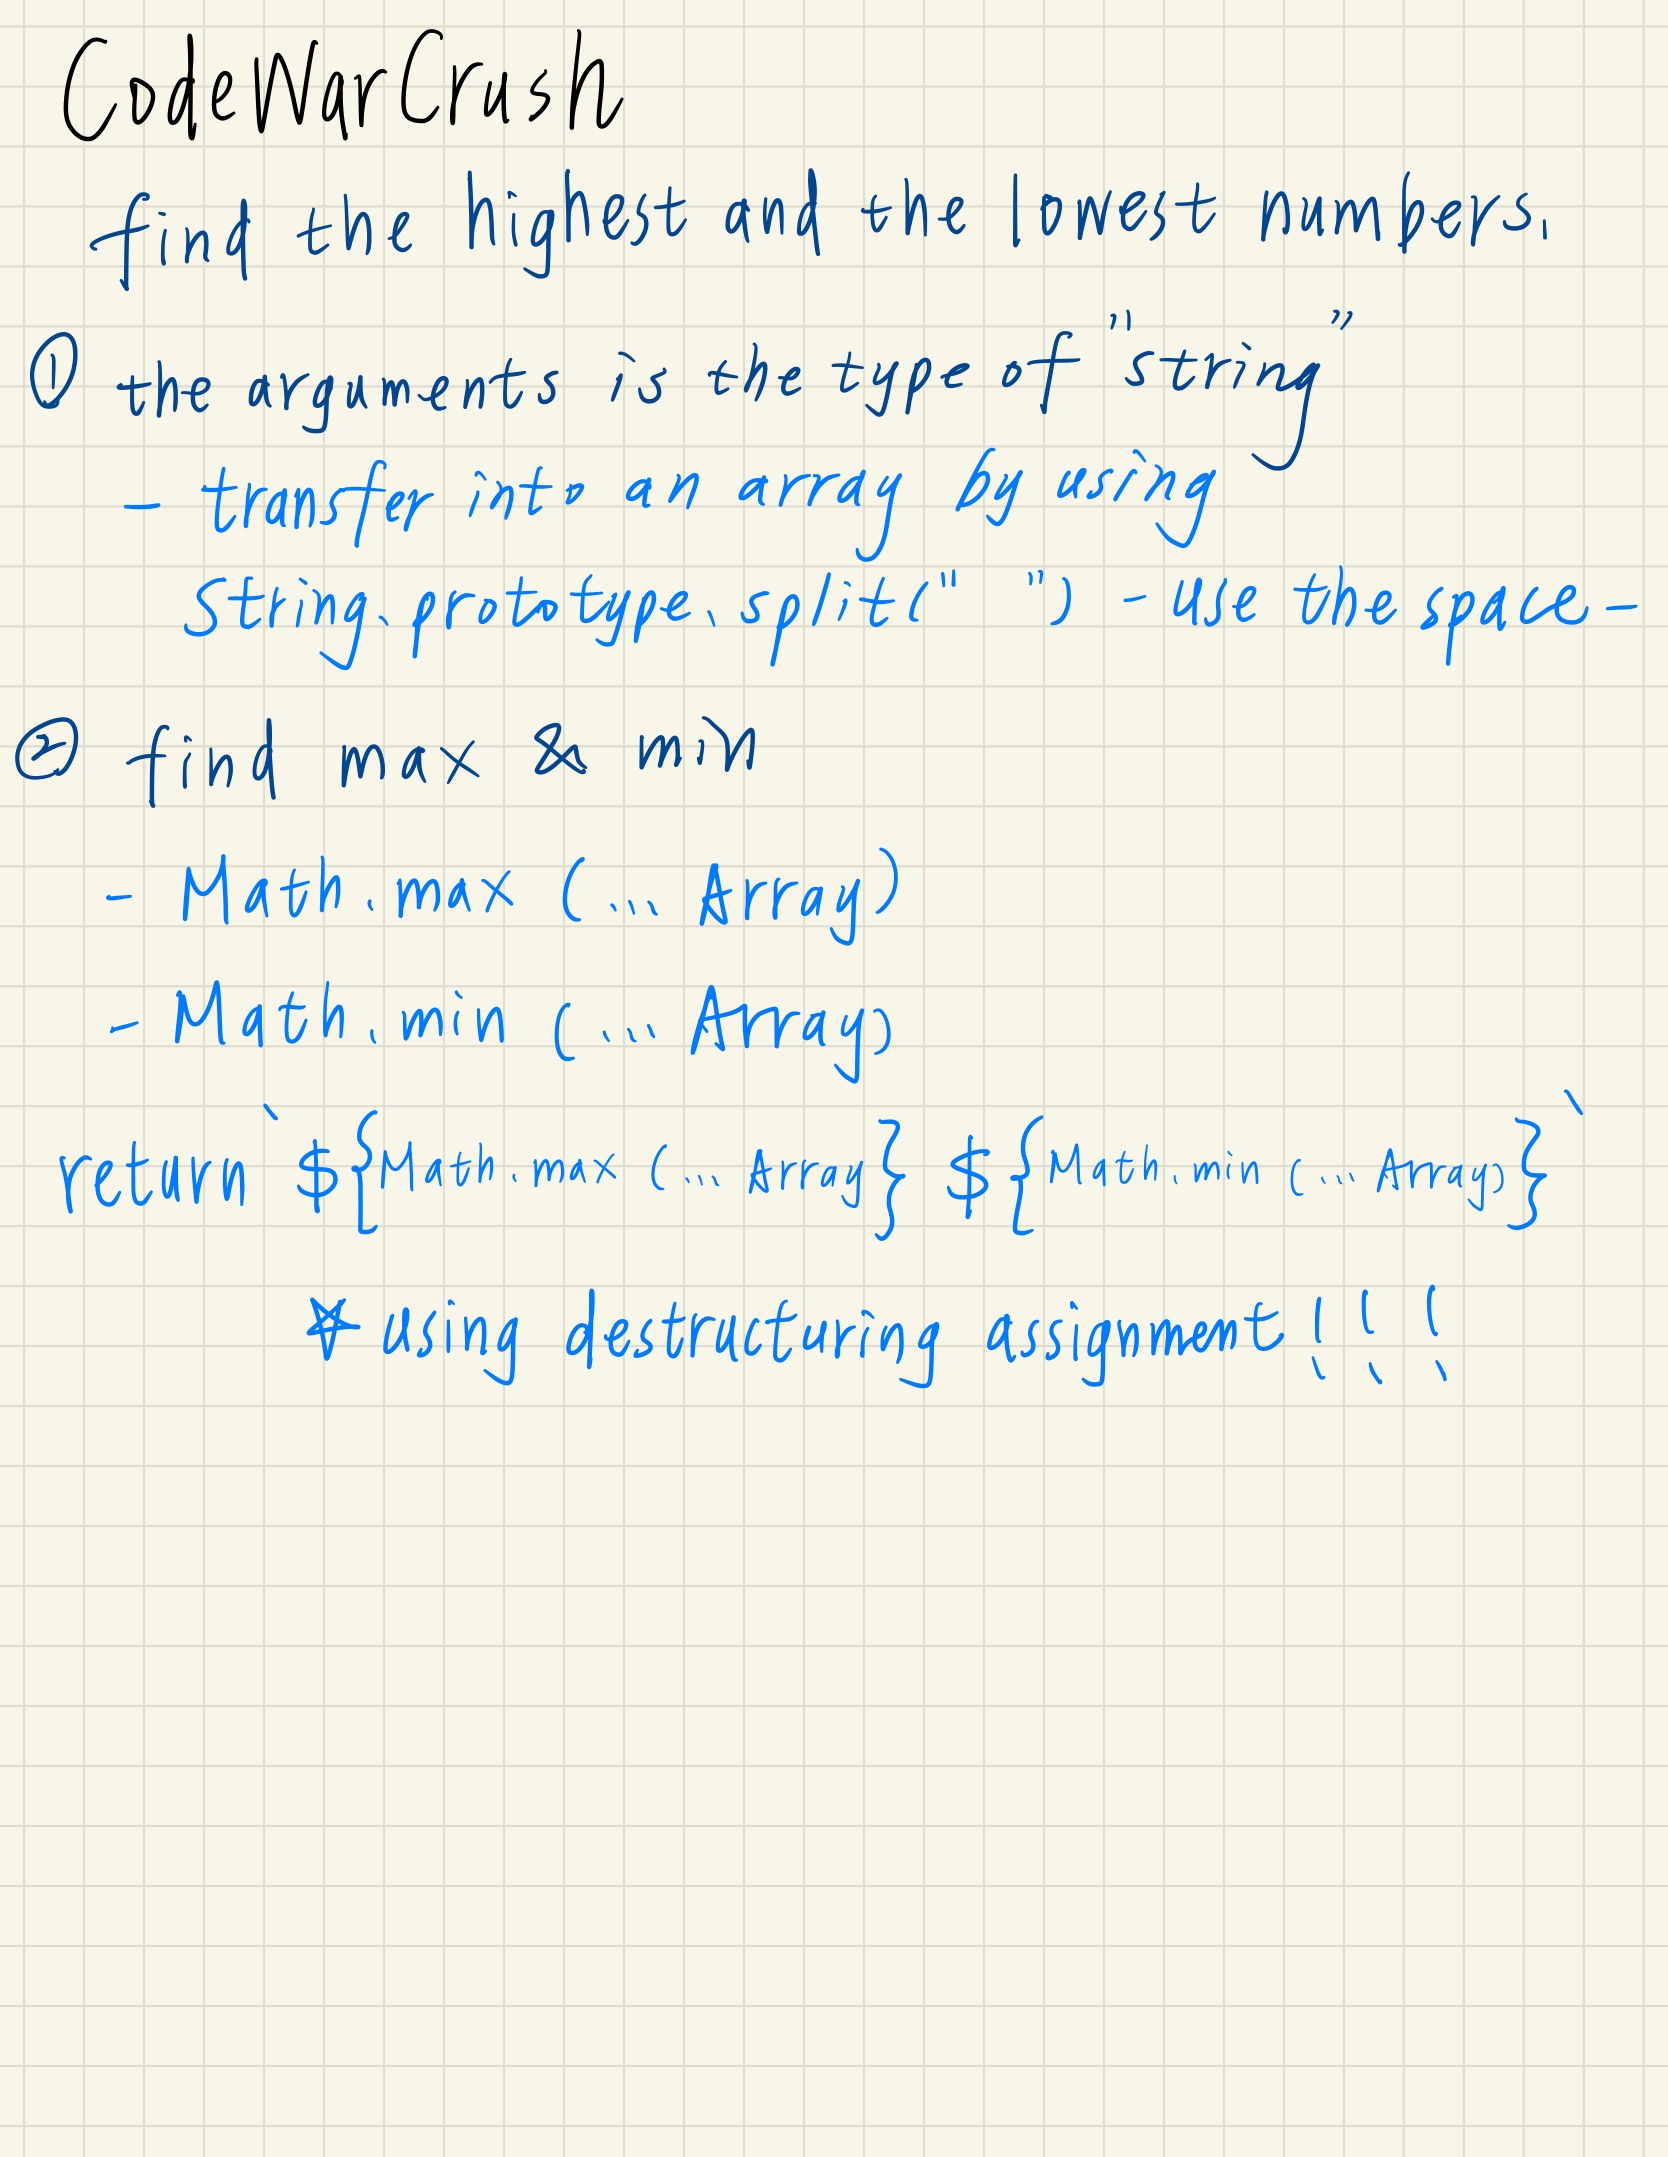 CodeWarCrush
find the highest and the lowest numbers.
① the arguments is the type of "string"
- transfer into an array by using
String.prototype.split(" ") - use the space -
② find max & min
- Math.max (... Array)
- Math.min (... Array)
return `${Math.max (... Array} ${Math.min (... Array)}`
☆ using destructuring assignment!!!